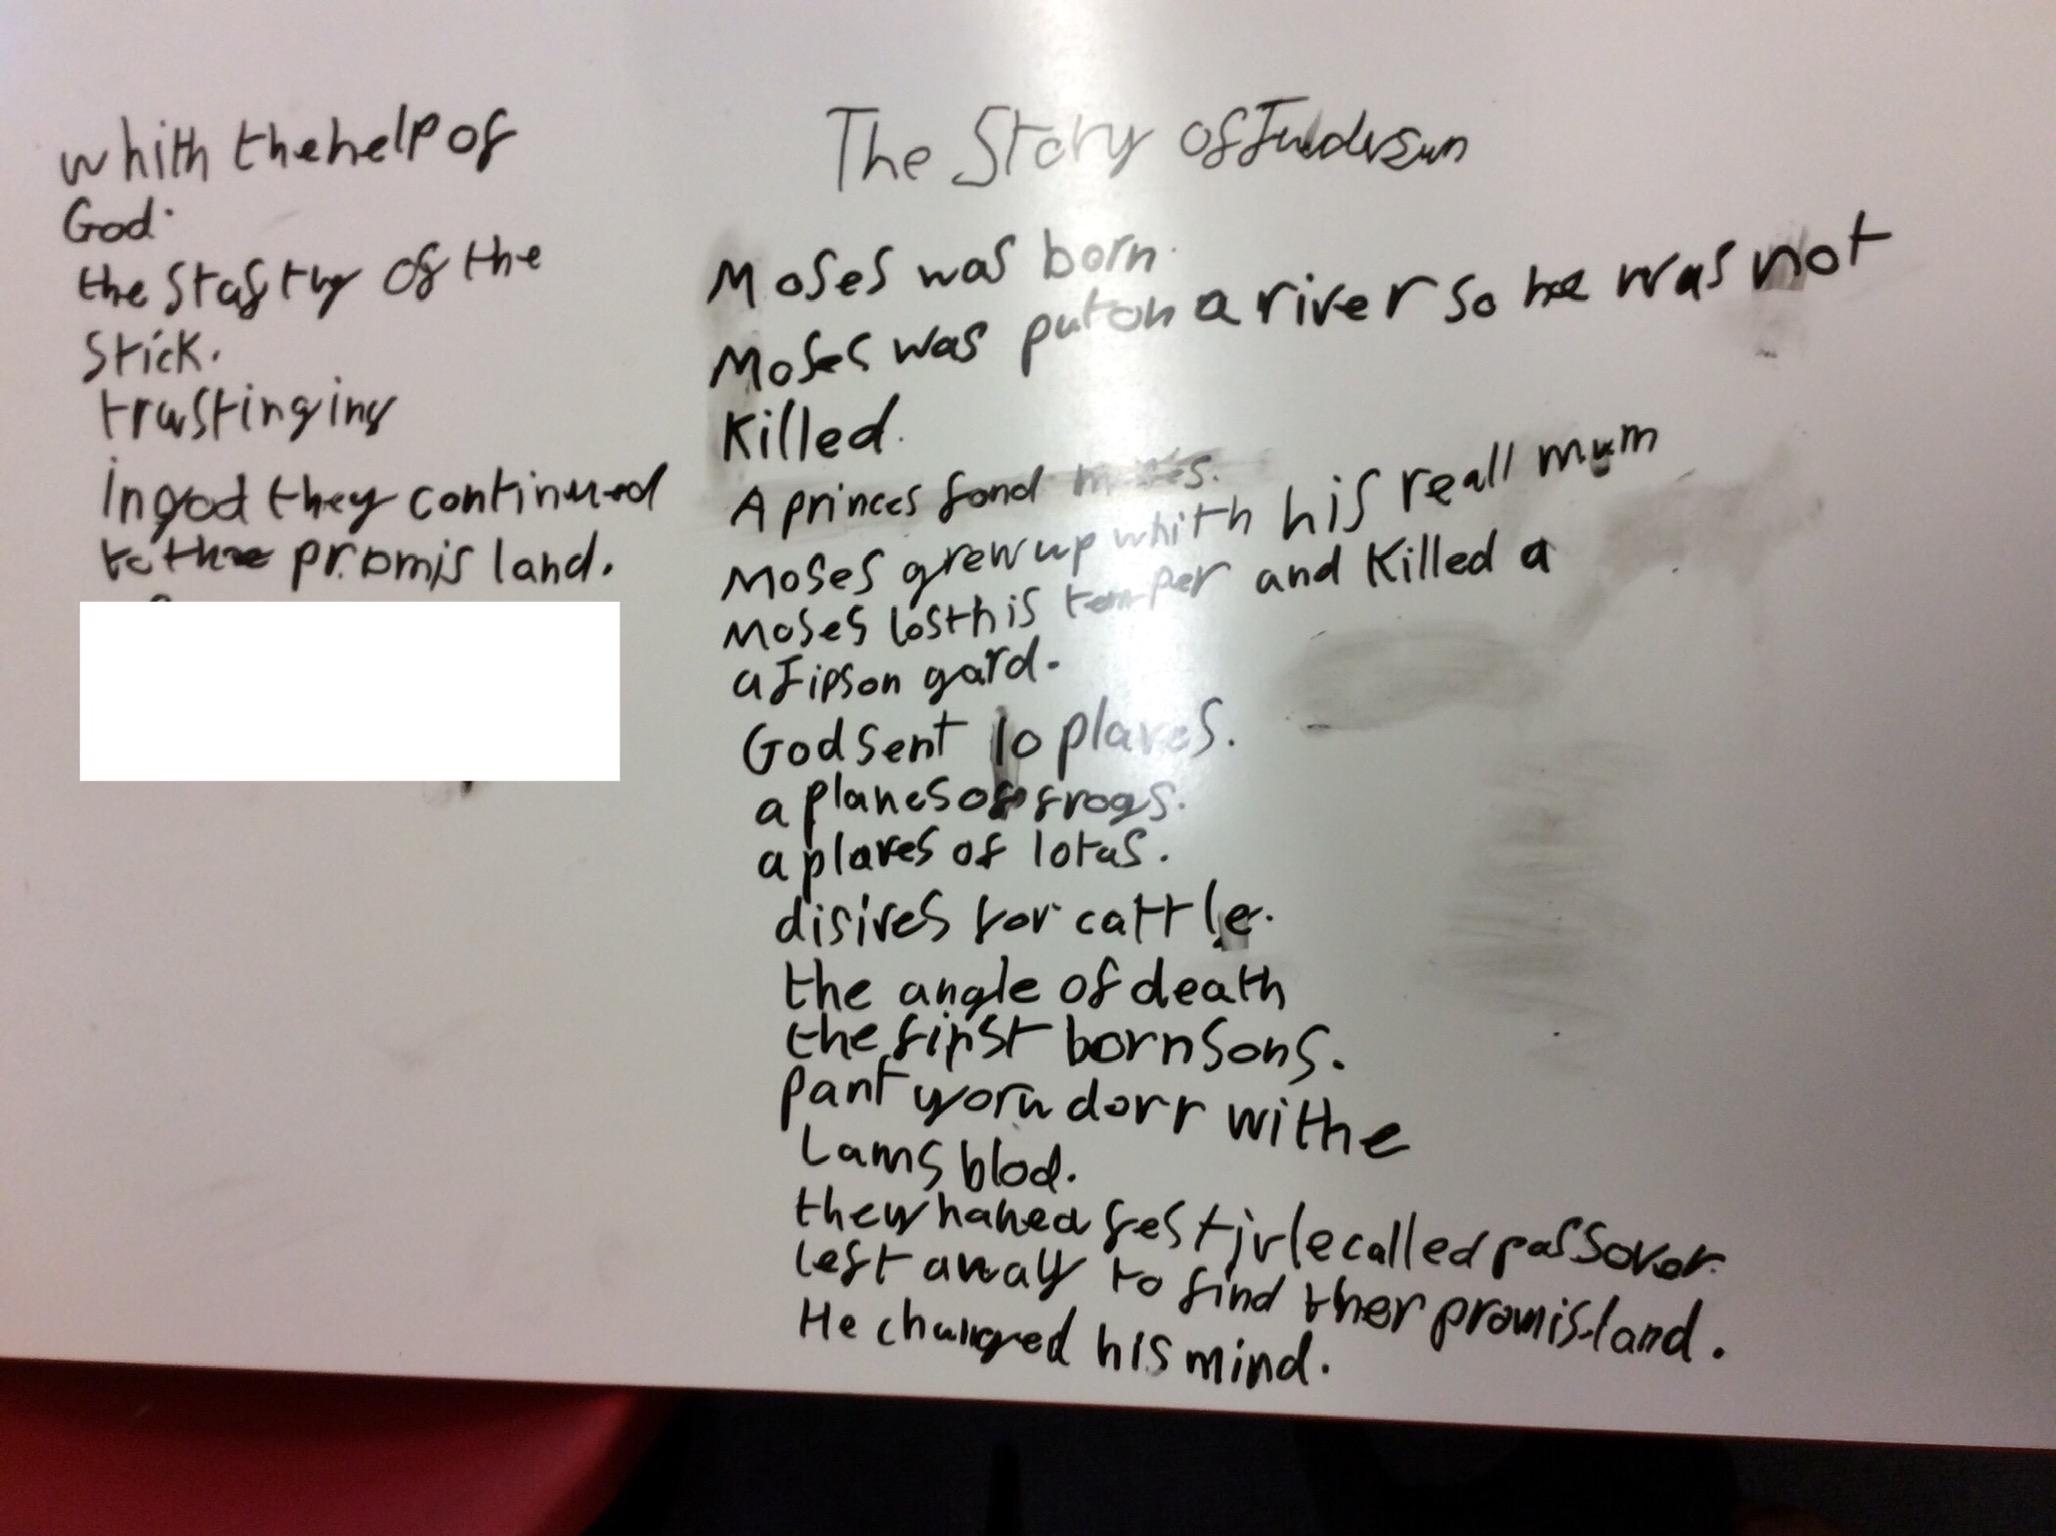 The Story of Juduesum
Moses was born.
Moses was put on a river so he was not
killed.
A princes fond moses.
Moses grew up whith his reall mum
Moses lost his temper and killed a
a Jipson gard.
God sent 10 plaves.
a planes of frogs.
a plaves of lotus.
disives for cattle.
the angle of death
the first born sons.
pant yoru dorr withe
Lams blod.
they haned festivle called passover.
left away to find ther promis-land.
He changed his mind.
whith the help of
God.
the stafty of the
stick.
trusting ing
in god they continued
to the promis land.